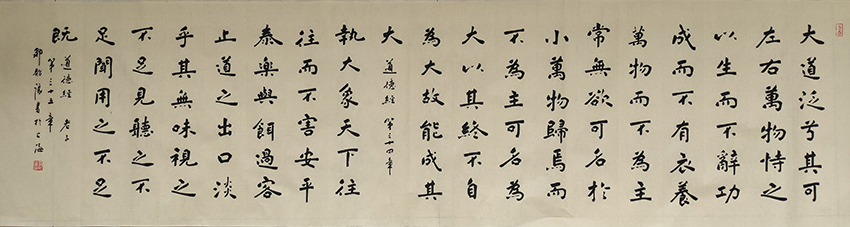 大道泛兮其可
左右萬物恃之
以生而不辭功
成而不有衣養
萬物而不為主
常無欲可名於
小萬物歸焉而
不為主可名為
大以其終不自
為大故能成其
大 道德經 第三十四章
執大象天下往
往而不害安平
泰樂與餌過客
止道之出口淡
乎其無味視之
不足見聽之不
足聞用之不足
既 道德經 老子
第三十五章
書於上海